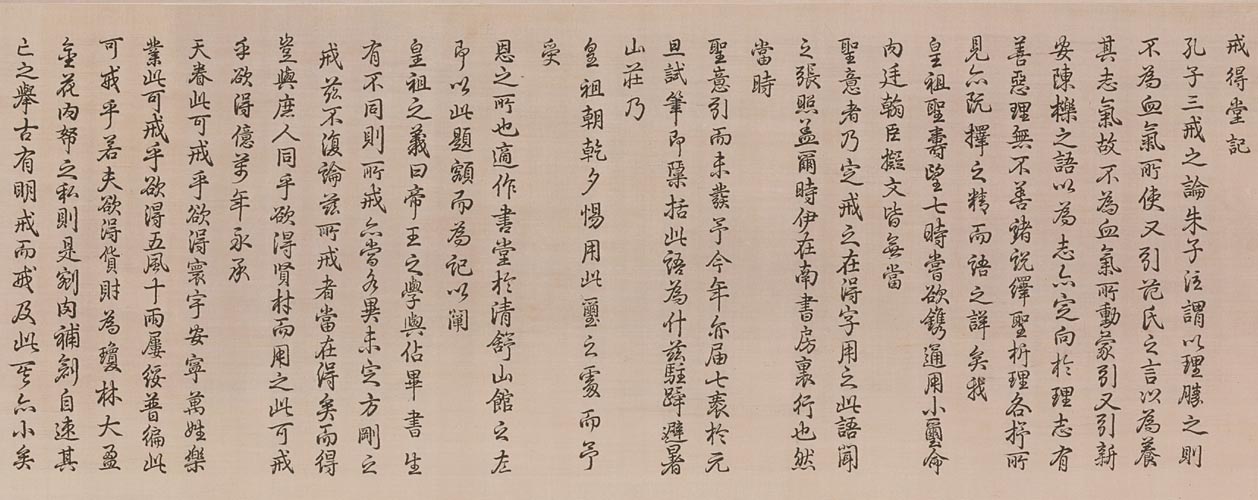 戒得堂記
孔子三戒之論朱子注謂以理勝之則
不為血氣所使又引范氏之言以為養
其志氣故不為血氣所動蒙引又引新
安陳櫟之語以為志亦定向於理志有
善惡理無不善諸說繹聖析理各抒所
見亦阮擇之精而語之詳矣我
皇祖聖壽望七時嘗欲鐫通用小璽命
內廷翰臣擬文皆無當
聖意者乃定戒之在得字用之此語聞
之張照蓋爾時伊在南書房裏行也然
當時
聖意引而未發予今年亦届七袠於元
旦試筆即檃括此語為什茲駐蹕避暑
山莊乃
皇祖朝乾夕惕用此璽之處而予
受
恩之所也適作書堂於清舒山館之左
即以此題額而為記以闡
皇祖之義曰帝王之學與佔畢書生
有不同則所戒亦當各異未定方剛之
戒茲不復論茲所戒者當在得矣而得
豈與庶人同乎欲得賢材而用之此可戒
乎欲得億萬年永承
天眷此可戒乎欲得寰宇安寧萬姓樂
業此可戒乎欲得五風十雨屢綏普徧此
可戒乎若夫欲得貨財為瓊林大盈
金花內帑之私則是剜肉補創自速其
亡之舉古有明戒而戒及此其亦小矣